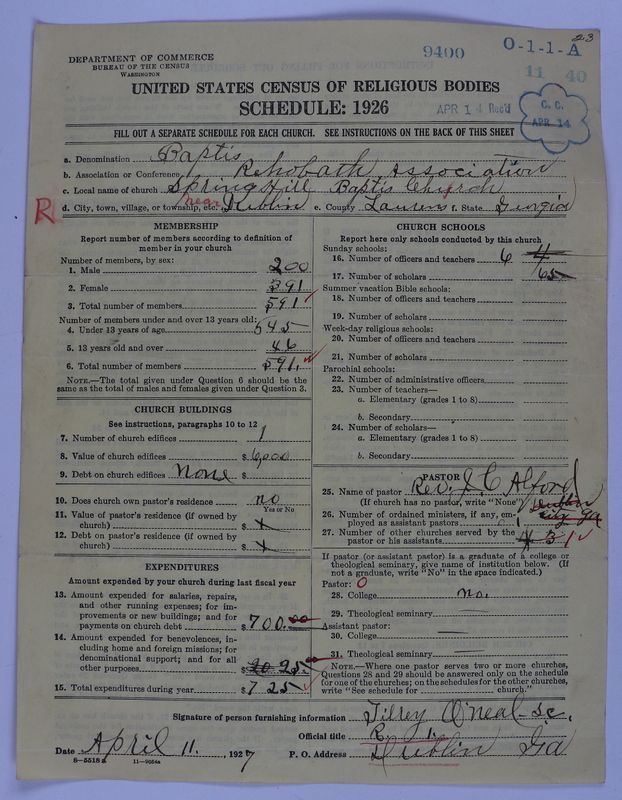 23
DEPARTMENT OF COMMERCE
BUREAU OF THE CENSUS
WASHINGTON
9400
O-1-1-A
11 40
UNITED STATES CENSUS OF RELIGIOUS BODIES
SCHEDULE: 1926
APR 14 Rec'd
C. C.
APR 14
FILL OUT A SEPARATE SCHEDULE FOR EACH CHURCH. SEE INSTRUCTIONS ON THE BACK OF THIS SHEET
a. Denomination Baptis
b. Association or Conference Rehobath Association
c. Local name of church Spring Hill Baptis Church
R
d. City, town, village, or township, etc. near Dublin e. County Laurens f. State Georgia
MEMBERSHIP
Report number of members according to definition of
member in your church
Number of members, by sex:
1. Male 200
2. Female 391
3. Total number of members 591
Number of members under and over 13 years old:
4. Under 13 years of age 545
5. 13 years old and over 46
6. Total number of members 591.
NOTE.—The total given under Question 6 should be the
same as the total of males and females given under Question 3.
CHURCH BUILDINGS
See instructions, paragraphs 10 to 12
7. Number of church edifices 1
8. Value of church edifices $ 6,000
9. Debt on church edifices None $
10. Does church own pastor's residence no
Yes or No
11. Value of pastor's residence (if owned by
church) $ x
12. Debt on pastor's residence (if owned by
church) $ x
EXPENDITURES
Amount expended by your church during last fiscal year
13. Amount expended for salaries, repairs,
and other running expenses; for im-
provements or new buildings; and for
payments on church debt $ 700.00
14. Amount expended for benevolences, in-
cluding home and foreign missions; for
denominational support; and for all
other purposes 25.
15. Total expenditures during year $ 725
CHURCH SCHOOLS
Report here only schools conducted by this church
Sunday schools:
16. Number of officers and teachers 6 4
17. Number of scholars 65
Summer vacation Bible schools:
18. Number of officers and teachers
19. Number of scholars
Week-day religious schools:
20. Number of officers and teachers
21. Number of scholars
Parochial schools:
22. Number of administrative officers
23. Number of teachers—
a. Elementary (grades 1 to 8)
b. Secondary
24. Number of scholars—
a. Elementary (grades 1 to 8)
b. Secondary
PASTOR
25. Name of pastor Rev. J. C. Alford
(If church has no pastor, write "None")
26. Number of ordained ministers, if any, em-
ployed as assistant pastors Ga
27. Number of other churches served by the
pastor or his assistants 3 1
If pastor (or assistant pastor) is a graduate of a college or
theological seminary, give name of institution below. (If
not a graduate, write "No" in the space indicated.)
Pastor: O
28. College no.
29. Theological seminary
Assistant pastor:
30. College
31. Theological seminary
NOTE.—Where one pastor serves two or more churches,
Questions 28 and 29 should be answered only on the schedule
for one of the churches; on the schedules for the other churches,
write "See schedule for church."
Signature of person furnishing information Tilley O'neal-Sc,
Official title R. 1.
Date April 11. 1927 P. O. Address Dublin Ga
8-5518a 11-9054a